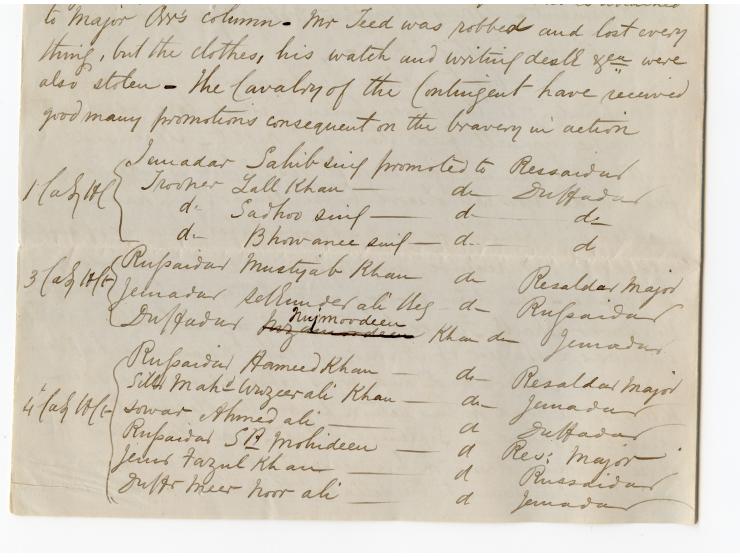 to Major Orr's column - Mr Teed was robbed and lost every
thing, but the clothes, his watch and writing desk &ca were
also stolen - The Cavalry of the Contingent have received
good many promotions consequent on the bravery in action
1 Cay HC { Jemadar Sahib sing promoted to Ressaidar
Trooper Lall Khan — do Duffadar
do Sadhoo sing — do do
do Bhowanee sing — do do
3 Cay HC { Russaidar Mustijab Khan do Resaldar Major
Jemadar Sekunder ali Beg do Russaidar
Nujmoodeen
Duffadar Khan do Jemadar
Russaidar Hameed Khan — do Resaldar Major
Sillr Mahd Wuzeer ali Khan — do Jemadar
4 Cay HC { Sowar Ahmed ali — d Duffadar
Russaidar SB Mohideen — d Res: Major
Jemr Fazul Khan — d Russaidar
Duffr Meer Noor ali — d Jemadar